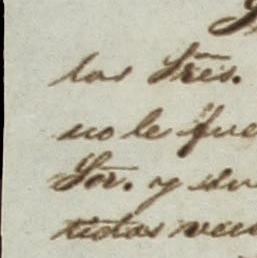 los Sres.
no le fue
Sor. y su
tidos vec